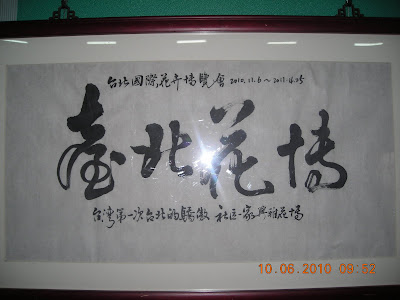 台北国際花卉博覽會 2010.11.6～2011.4.25
臺北花博
台灣第一次台北的驕傲 社区一家與雅花博
10.06.2010 09:52